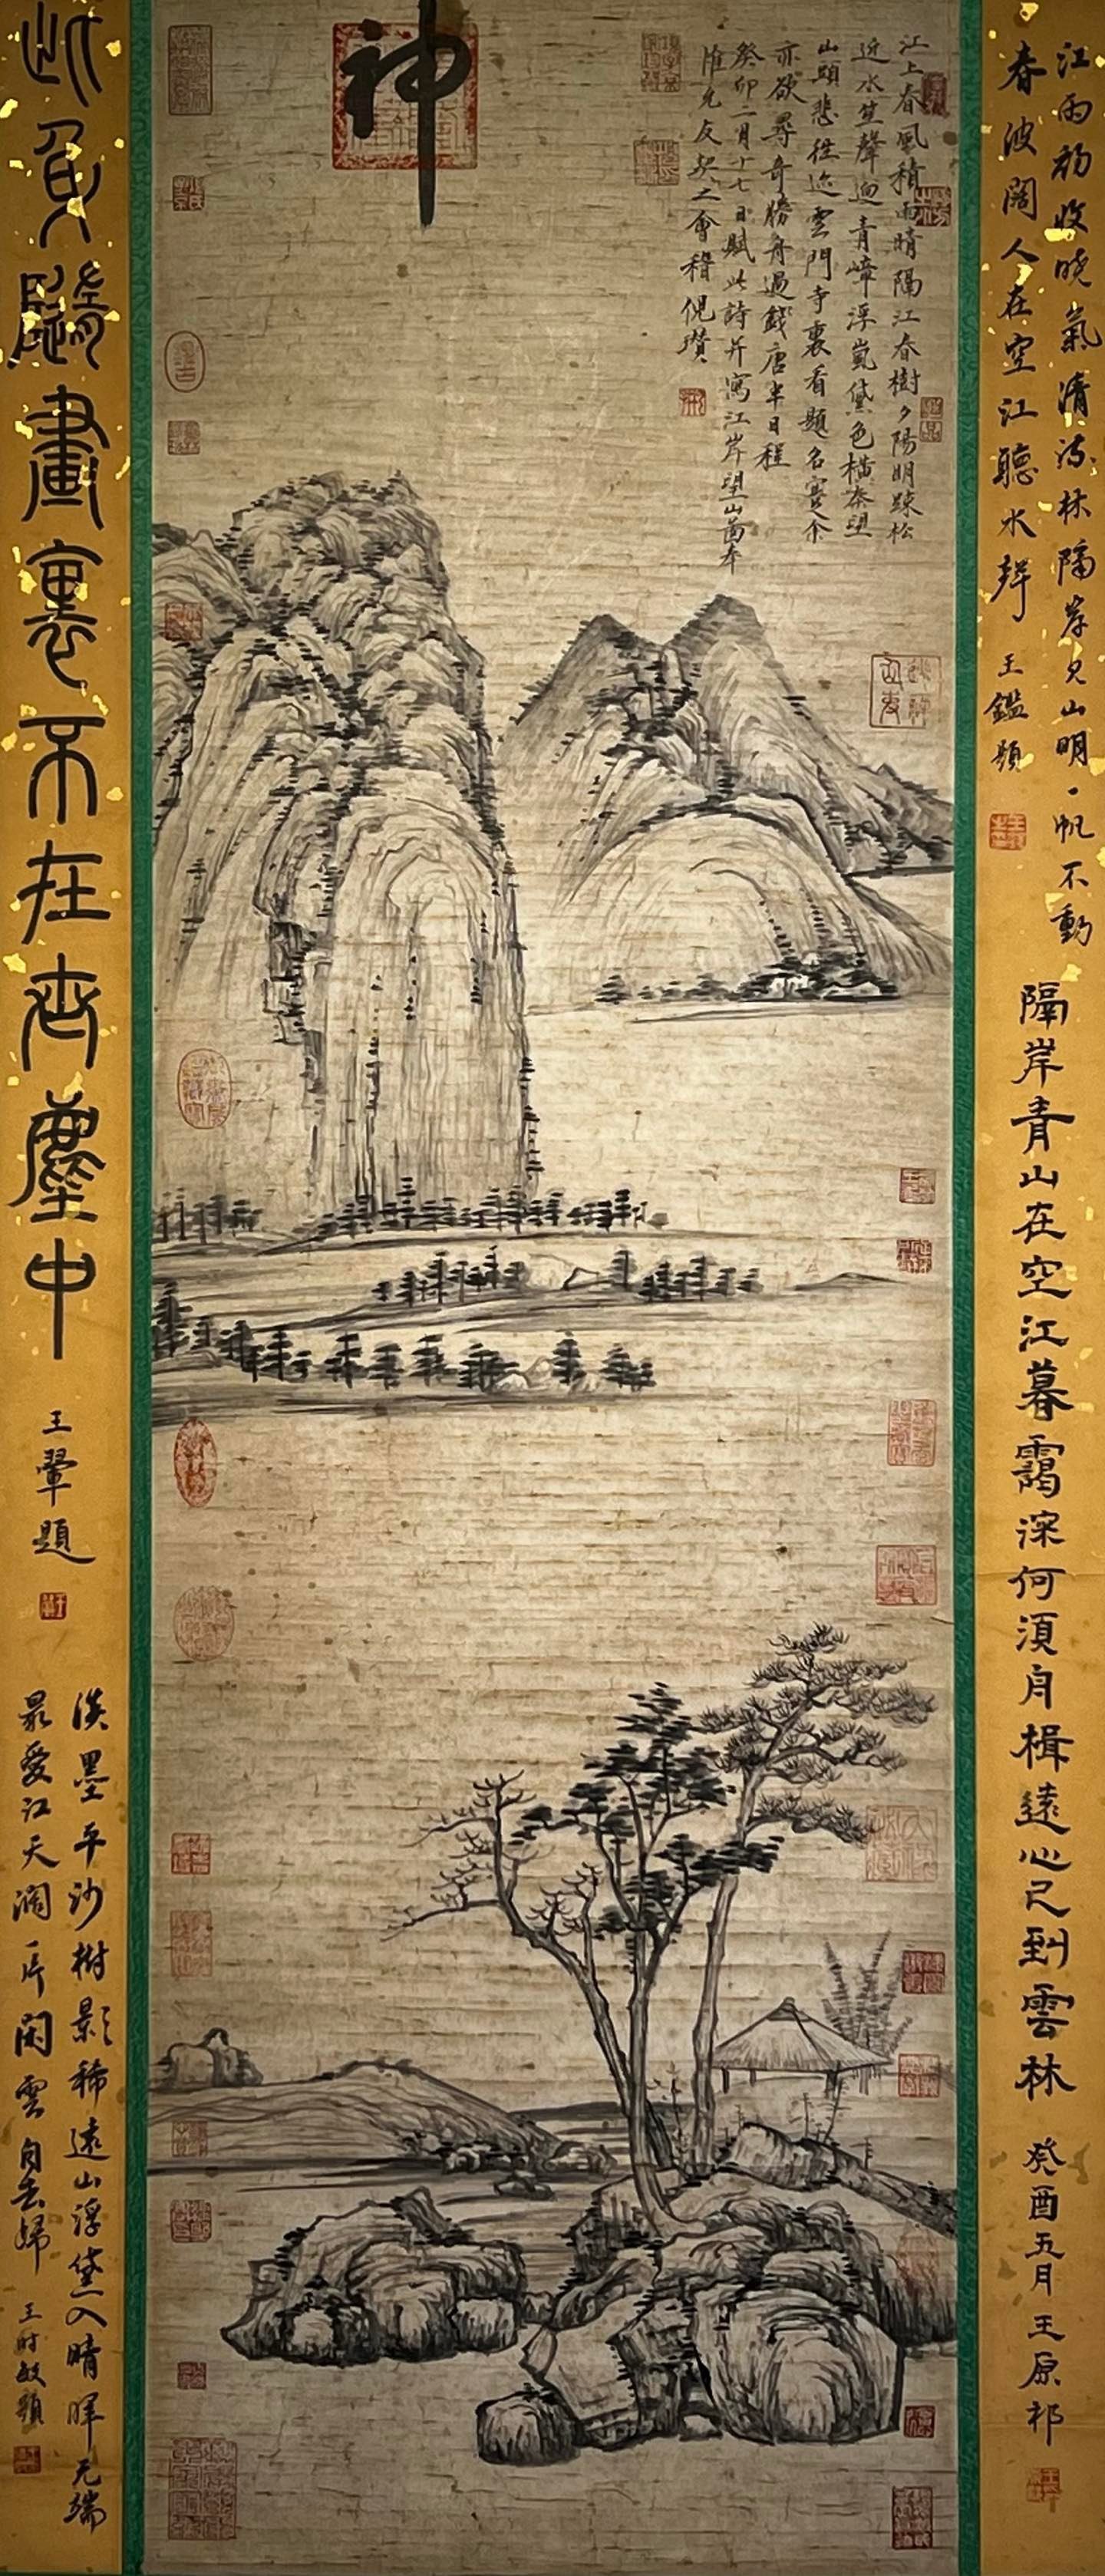 神
江上春風積雨晴隔江春樹夕陽明疎松
近水笙聲迥青嶂浮嵐黛色橫秦望
山頭悲往迹雲門寺裏看題名蹇余
亦欲尋奇勝舟過錢唐半日程
癸卯二月十七日賦此詩并寫江岸望山啚奉
惟允友契之會稽倪瓚
江雨初收晓氣清疎林隔岸見山明一帆不動
春波闊人在空江聽水聲
王鑑題
隔岸青山在空江暮靄深何須舟楫遠心已到雲林
癸酉五月王原祁
此身隨畫裏不在市塵中
王翬題
淡墨平沙樹影稀遠山浮黛入晴暉无端
最愛江天濶一片閑雲自去歸
王時敏題